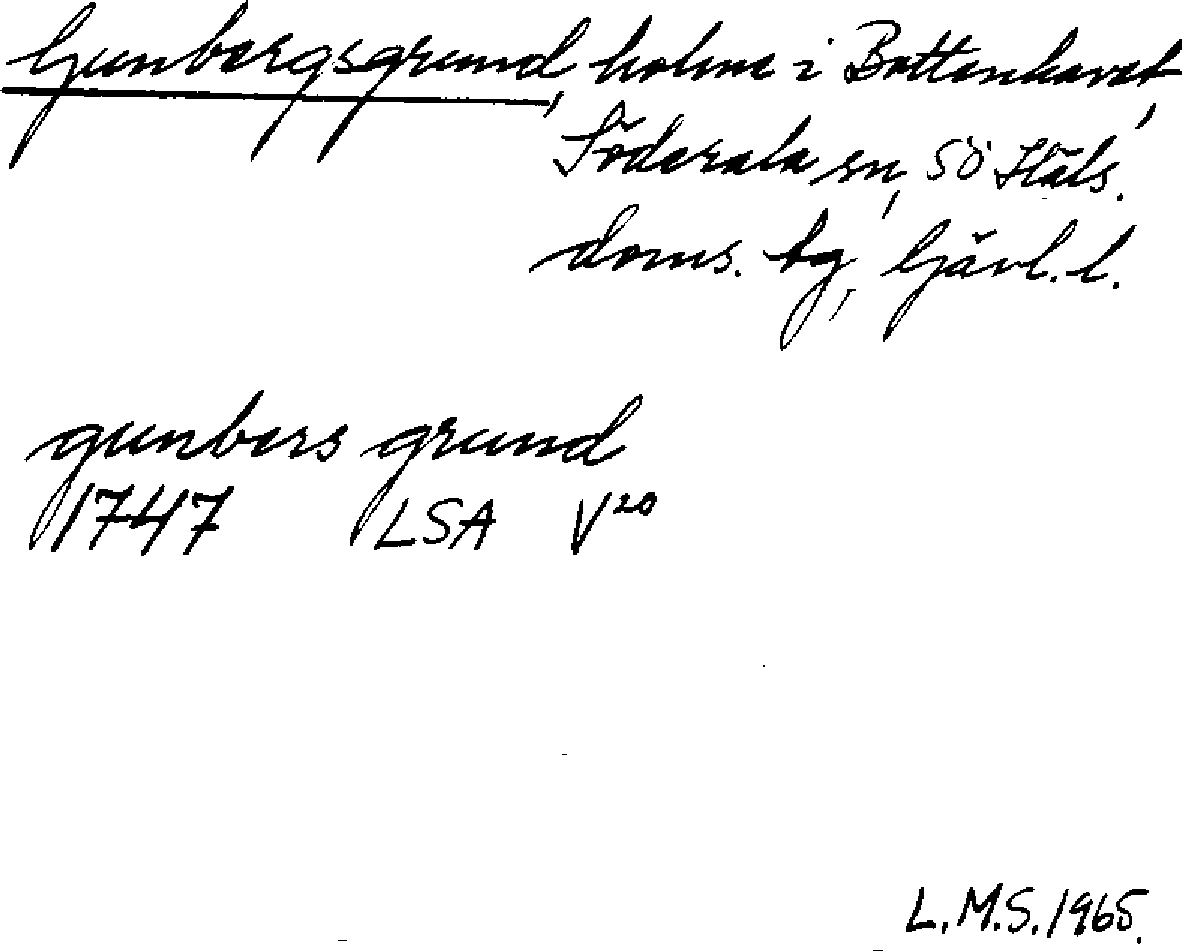 Gunbergsgrund, holme i Bottenhavet,
Söderala sn, SÖ Häls.
doms. tg, Gävl. l.
gunbers grund
1747 LSA V20
L.M.S. 1965.